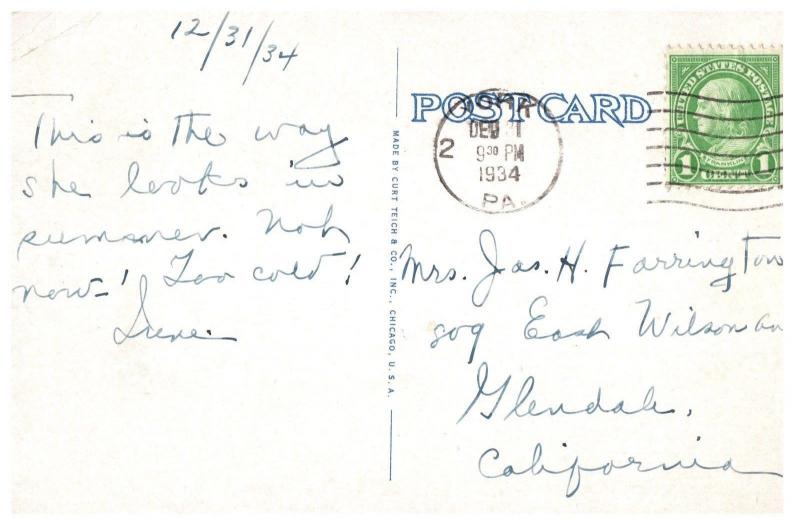 12/31/34
This is the way
she looks in
summer. Not
now-! Too cold!
Irene
MADE BY CURT TEICH & CO., INC., CHICAGO, U.S.A.
POST CARD
2
DEC 31
9 30 PM
1934
PA.
UNITED STATES POSTAGE
FRANKLIN
1 1
Mrs. Jas. H. Farrington
809 East Wilson av
Glendale,
California